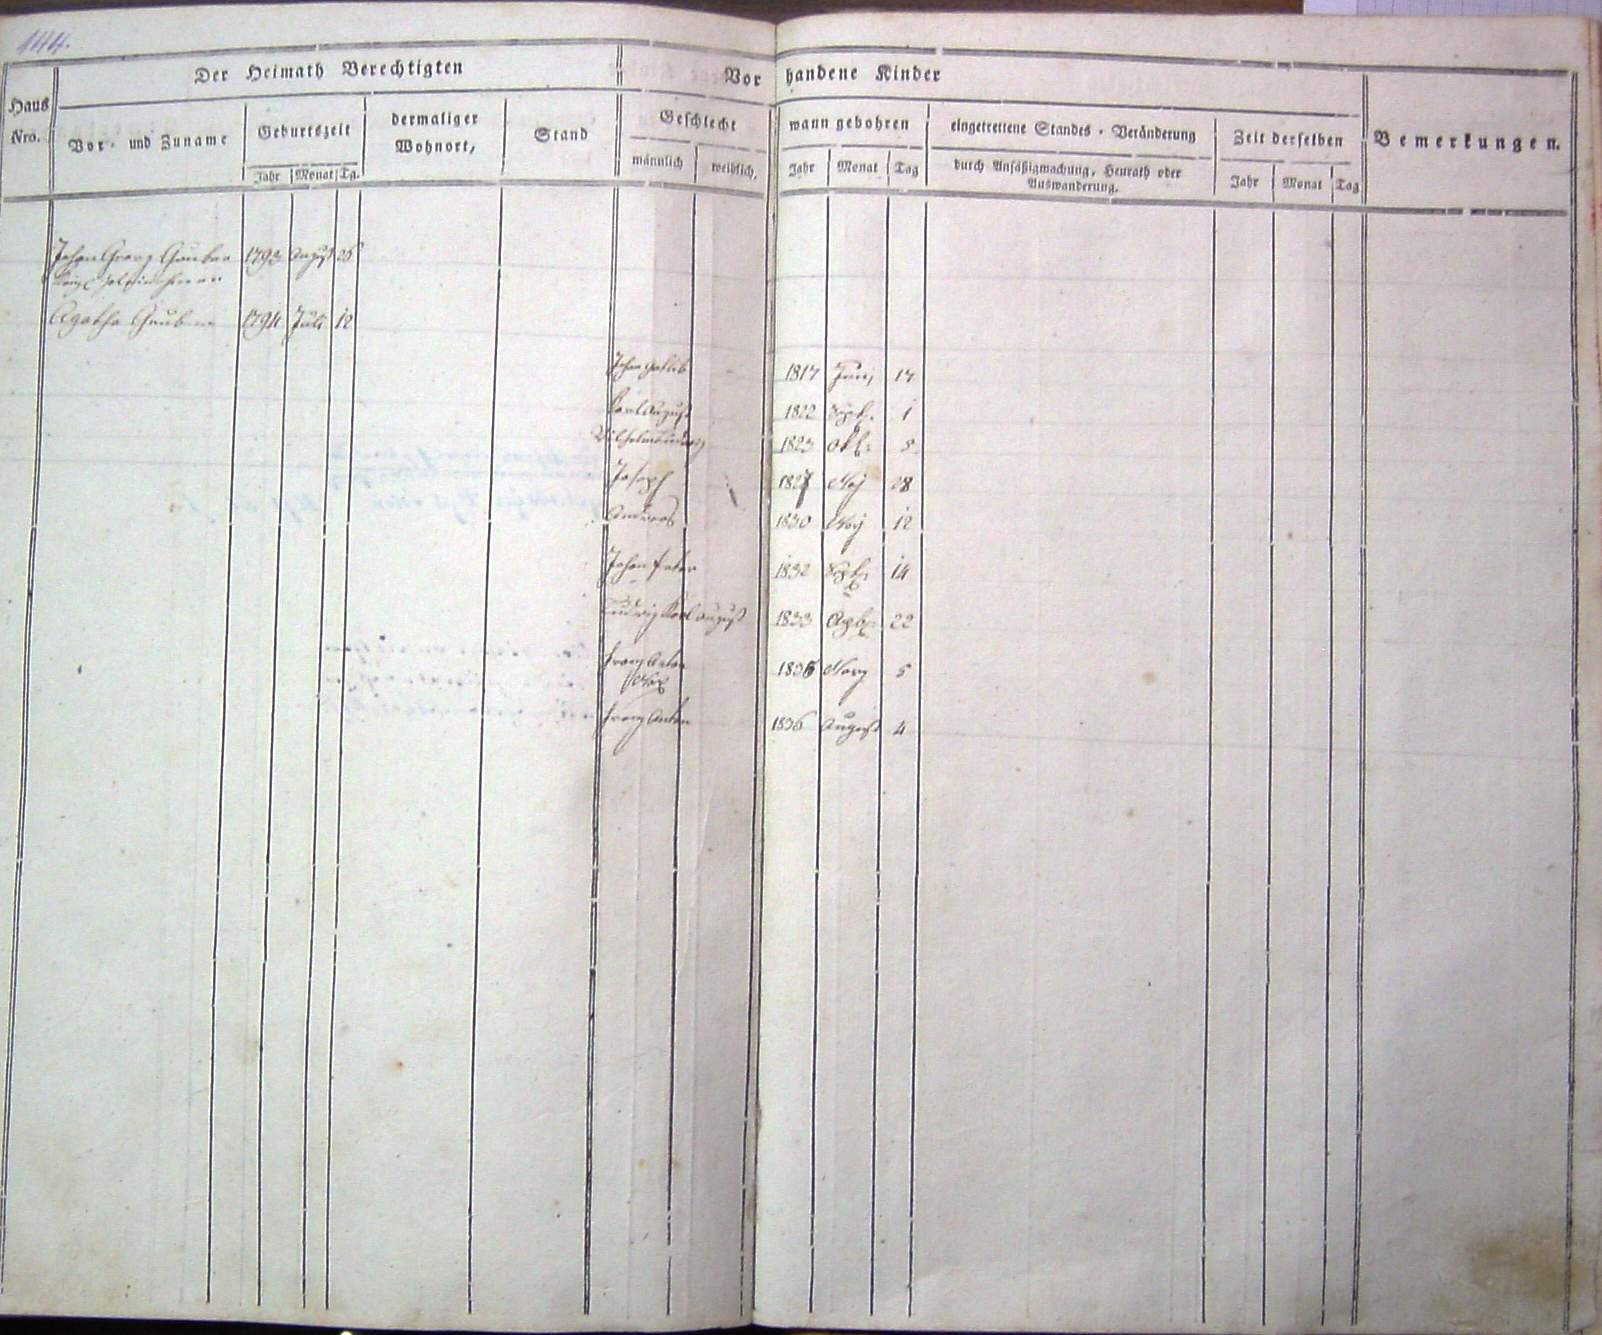 144.
Der Heimath Berechtigten
Vorhandene Kinder
Haus Nro.
Vor- und Zuname
Geburtszeit
Jahr Monat Tg.
dermaliger Wohnort,
Stand
Geschlecht
männlich weiblich,
wann gebohren
Jahr Monat Tag
eingetrettene Standes-Veränderung
durch Ansäßigmachung, Heurath oder
Auswanderung.
Zeit derselben
Jahr Monat Tag
Bemerkungen.
Johan Georg Gruber 1793 August 26
Agatha Gruber 1794 Juli 12
Johan 1817 Juni 17
Karl August 1822 Sept. 1
Wilhelm Ludwig 1823 Okt. 5
Joseph 1827 May 28
Andreas 1830 May 12
Johan Peter 1832 Sept. 14
Ludwig Karl August 1833 22
Franz Anton Max 1835 März 5
Franz Anton 1836 August 4